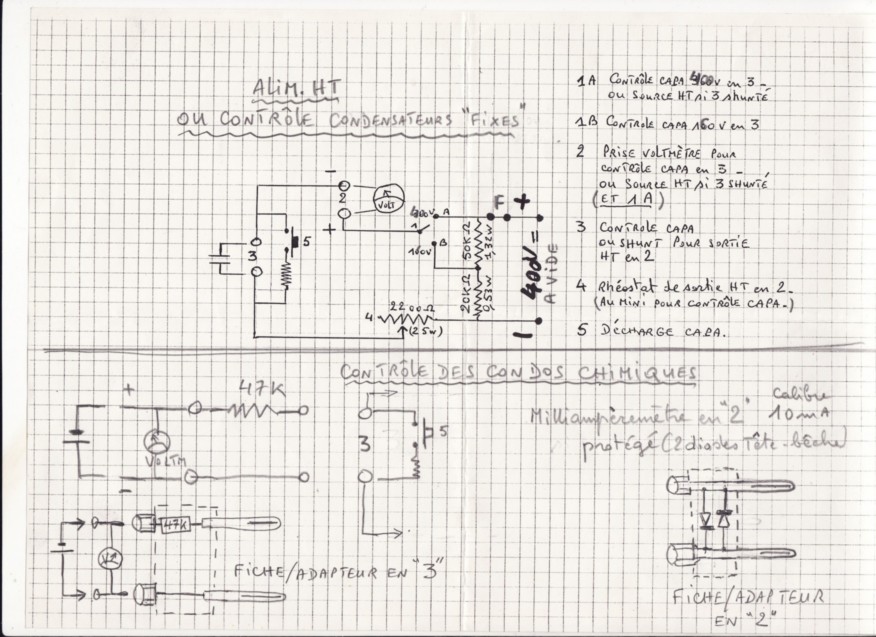 ALIM. HT
OU CONTRÔLE CONDENSATEURS "FIXES"
1A CONTRÔLE CAPA 400V en 3 -
OU SOURCE HT si 3 SHUNTÉ
1B CONTROLE CAPA 160V en 3
2 PRISE VOLTMÈTRE POUR
CONTRÔLE CAPA en 3 -
OU SOURCE HT SI 3 SHUNTÉ
(ET 1A)
3 CONTRÔLE CAPA
OU SHUNT POUR SORTIE
HT en 2
4 Rhéostat de sortie HT en 2 -
(AU MINI POUR CONTRÔLE CAPA -)
5 DÉCHARGE CAPA.
-
2
VOLT
+
5
3
400V
A
1
B
160V
F
+
50KΩ
1,32W
20KΩ
0,53W
400V =
A VIDE
-
2200Ω
4
(25W)
CONTRÔLE DES CONDOS CHIMIQUES
+
47K
VOLTM
-
3
5
Milliampèremètre en "2" Calibre
10mA
protégé (2 diodes Tête-bêche)
47K
V
FICHE/ADAPTEUR EN "3"
FICHE/ADAPTEUR
EN "2"